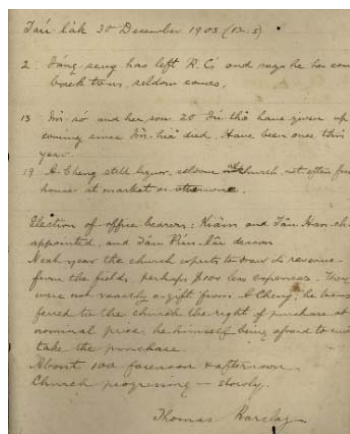 Táu lák 30 December 1903 (12.5)
2. seng has left R. C's and says he has come
back to us, seldom comes.
13 and her son 20 have given up
coming since died. Have been once this
year.
19 A. Cheng still liquor, seldom church, not often
house at market or otherwise.
Election of office bearers: Khiàm and Tân Han
appointed, and Tâm deacon
Next year the church expects to draw revenue
from the fields, perhaps $100 less expenses. They
were not exactly a gift from A Cheng; he trans
ferred to the church the right of purchase at
nominal price, he himself being afraid to
take the purchase.
About 100 forenoon & afternoon.
Church progressing – slowly.
Thomas Barclay